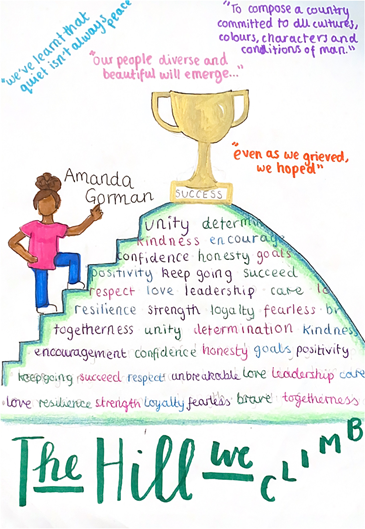 "we've learnt that
quiet isn't always peace
"To compose a country
committed to all cultures,
colours, characters and
conditions of man."
"Our people diverse and
beautiful will emerge..."
"even as we grieved,
we hoped"
Amanda
Gorman
SUCCESS
unity determin
kindness encourage
confidence honesty goals
positivity keep going succeed
respect love leadership care
resilience strength loyalty fearless br
togetherness unity determination kindnes
encouragement confidence honesty goals positivity
keep going succeed respect unbreakable love leadership care
love resilience strength loyalty fearless brave togetherness
The Hill we CLIMB